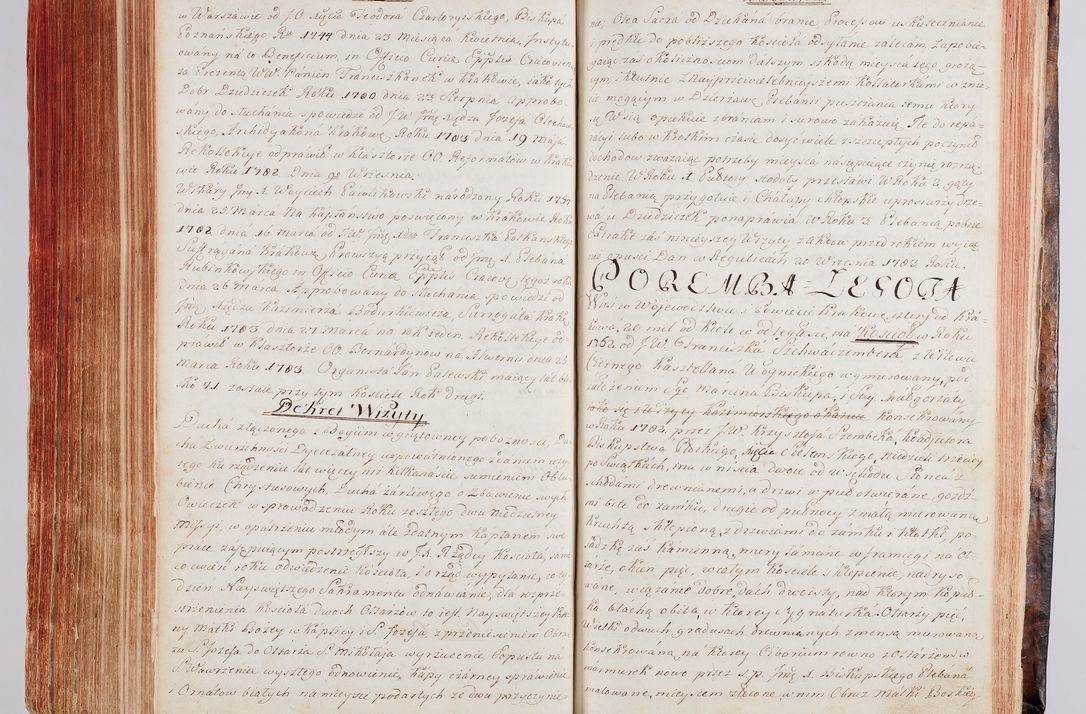 w Warszawie od J.O. Xięcia Teodora Czartoryskiego, Biskupa
Poznańskiego Rku 1744 dnia 23 Miesiąca Kwietnia, Instytu=
owany na to Beneficium, in Officio Curiæ Eppłis Cracovien:
za Prezentą WW. Panien Franciszkanek w Krakowie, iako tych
Dobr Dziedziczek Roku 1780 dnia 23 Sierpnia, approbo=
wany do słuchania spowiedzi od J.W. Jmć Xiędza Jozefa Olechow=
skiego, Archidyakona Krakow: Roku 1783 dnia 19 maja.
Rekollekcye odprawił w klasztorze OO. Reformatów w Krako=
wie Roku 1782 Dnia 9 Wrzesnia.
Wikary Jmć X. Woyciech Pawlikowski narodzony Roku 1757
dnia 25 Marca Na Kapłaństwo poswięcony w Krakowie Roku
1782 dnia 16 marca od J.W. Jmć Xdza Franciszka Potkańskiego
Suffragana Krakow: Prowizyą przyiął od Jmć X. Stefana
Rubinkowskiego in Officio Curiæ Eppłis Cracov: tegoż roku
dnia 26 marca. Approbowany do słuchania spowiedzi od
Jmć Xiędza Kazimierza Bodurkiewicza, Surrogata Krak:
Roku 1783 dnia 27 marca na rok ieden. Rekollekcye od=
prawił w klasztorze OO. Bernardynow na Alwerni dnia 23
marca Roku 1783. Organista Jan Palewski maiący lat bli=
sko 41 zostaie przy tym kosciele Rok drugi.
Dekret Wizyty
Ducha złączonego z Bogiem w gruntowney poboznosci, Du=
cha Zwierzchności Dyecezalney uzpoważnionego zdaniem uży=
tego ku rządzeniu lat więcey niż kilkanaście sumieniem Oblu=
bienic Chrystusowych, Ducha żarliwego o Zbawienie swych
Owieczek w sprowadzeniu Roku zeszłego dwu niedzielney
Missyi, w opatrzeniu młodym ale zdatnym Kapłanem swe
prace zastępuiącym postrzegłszy w J.X. Rządcy kościoła, zara=
co uczni roku odwiedzenie kościoła, i orząd wypytanie, co ty=
dzień Nayswiętszego Sakramentu odnawianie, dla rozprze=
strzenienia kościoła dwoch Ołtarzow to iest Nayswiętszey Pan=
ny Matki Bożey w kaplicy i S. Jozefa z przeniesieniem Obra=
zu S. Jozefa do Ołtarza S. Mikołaja wyrzucenie, Popustu na
S. Wawrzenca wyszłego odnowienie, kapy czarney sprawienie
i Ornatow białych na mieysce podartych ze dwu przyczynie=
nie, Olea Sacra od Dziekana branie, Processow uskutecznianie
i prędkie do pobliższego kościoła odsyłanie zalecam. Zapobie=
gaiąc zaś okolicznościom dalszym szkodą mieysca tego grożą=
cym, i kłutnie z Nayprzewielebnieyszemi kollatorkami wznie=
cić mogącym w Dzierżawę Plebanii puszczania temu który
tą Wsią opiekuie zbraniam i surowo zakazuię. Ile do repa=
racyi lubo w krotkim czasie dosyć wiele z szczupłych poczynił
dochodow zważaiąc potrzeby mieysca następuiące czynię rozrzą=
dzenie. W Roku 1. Pułtory stodoły przestawi. W Roku 2. gęty
na Plebanią przygotuie i Chałupy Chłopskie uprosiwszy drze=
wa u Dziedziczek ponaprawia. W Roku 3 Plebania pobuie
Extrakt zaś ninieyszey Wizyty z aktow przed rokiem wyiąć
nie opuści. Dan w Regulicach 20 Września 1783 Roku.
POREMBA=ZEGOTA
Wieś w Woiewództwie i Powiecie Krakow: cztery od Kra=
kowa, 20 mil od Kielc w odległości, ma Kościoł w Roku
1762 od J.W. Franciszka Szchwaczemberk z Witowic
Czernego Kasztelana Woynickiego wymurowany, pod
założeniem SS. Marcina Biskupa, i Sty Małgorzaty
konsekrowany
w Roku 1782 przez J.W. Krzysztofa Szembeka, koadjutora
Biskupstwa Płockiego, Xięcia Sielunskiego, niedzieli trzeciey
po Swiątkach, ma w niscia dwoie od wschodu Słonca z
schodami drewnianemi, a drzwi w puł otwierane, gozdzi=
mi bite do zamku, drugie od pułnocy z małą murowaną
kruchtą sklepioną z drzwiami do zamku i kłotki, po=
sadzkę zaś kamienną, mury łamane w framugi na Oł=
tarze, okien pięć, w całym kościele sklepienie, nad ryso=
wane, wiązanie dobre, dach dwoisty, nad ktorym kopuł=
ka blachą obita, w ktorey sygnaturka. Ołtarzy pięć,
Wielki o dwuch gradusach drewnianych z mensą murowaną
konsekrowaną, na ktorey Ciborium rowno z ołtarzem w
marmurek nowo przez s.p. Jmć X. Biskupskiego Plebana
malowane, mieyscem złocone, w nim Obraz Matki Boskiey